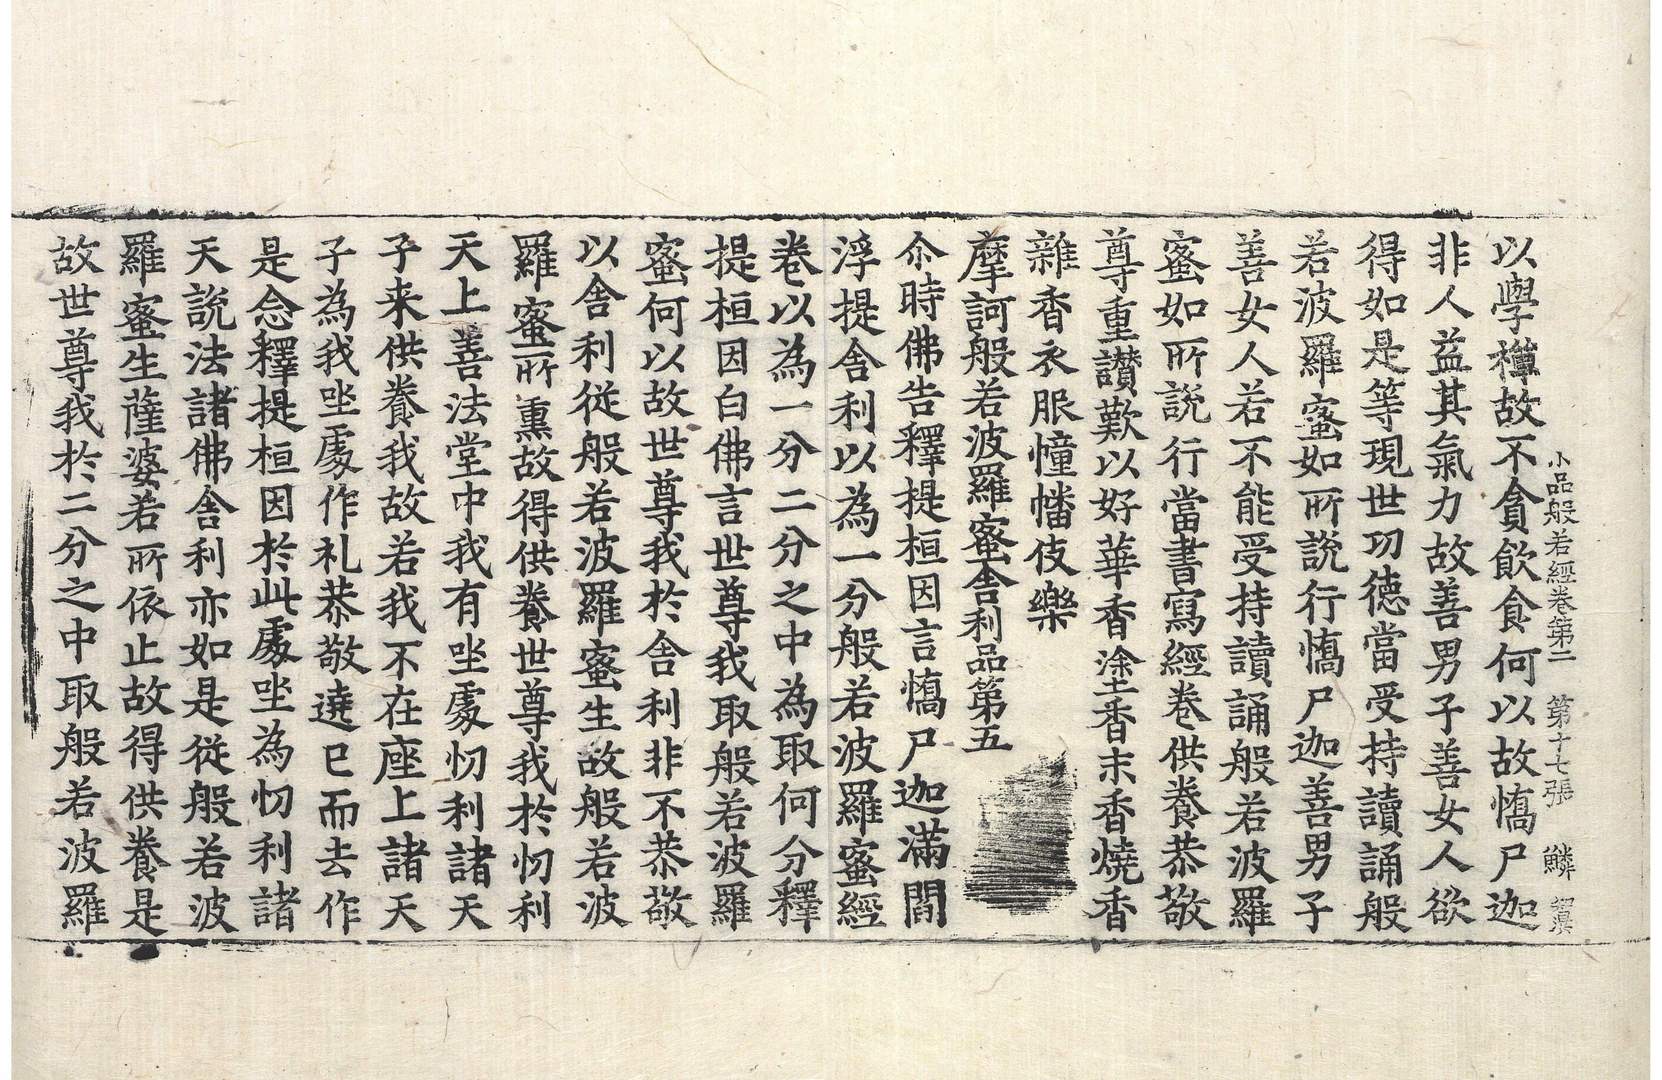 小品般若經卷第二 第十七張 鱗
以學禪故不貪飮食何以故憍尸迦
非人益其氣力故善男子善女人欲
得如是等現世功德當受持讀誦般
若波羅蜜如所說行憍尸迦善男子
善女人若不能受持讀誦般若波羅
蜜如所說行當書寫經卷供養恭敬
尊重讃歎以好華香塗香末香燒香
雜香衣服幢幡伎樂
摩訶般若波羅蜜舍利品第五
尒時佛告釋提桓因言憍尸迦滿閻
浮提舍利以為一分般若波羅蜜經
卷以為一分二分之中為取何分釋
提桓因白佛言世尊我取般若波羅
蜜何以故世尊我於舍利非不恭敬
以舍利從般若波羅蜜生故般若波
羅蜜所熏故得供養世尊我於忉利
天上善法堂中我有坐處忉利諸天
子来供養我故若我不在座上諸天
子為我坐處作礼恭敬遶已而去作
是念釋提桓因於此處坐為忉利諸
天說法諸佛舍利亦如是從般若波
羅蜜生薩婆若所依止故得供養是
故世尊我於二分之中取般若波羅